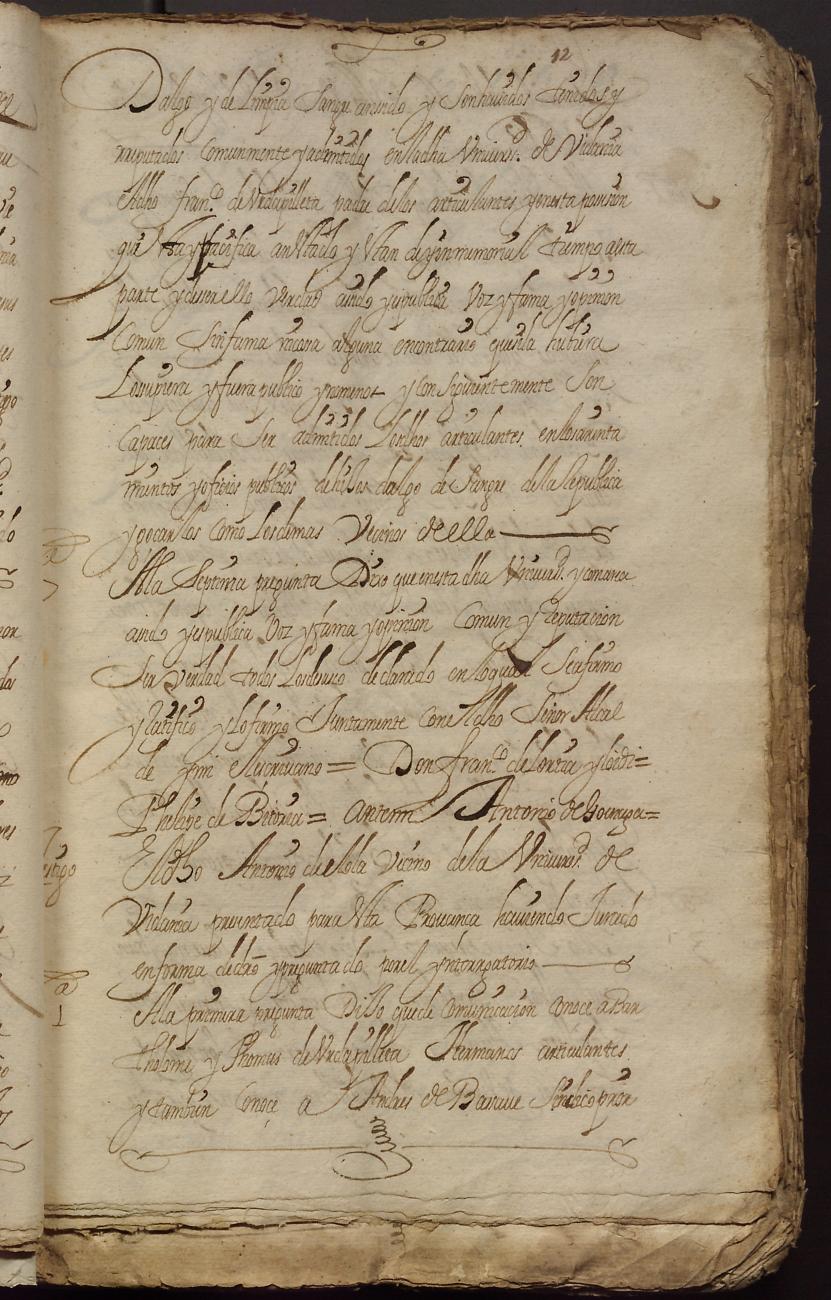 12
Dalgo y de limpia sangre avindo y son havidos tenidos y
rreputados comunmente y admitidos en la dha Vniversd. de Vidania
el dho franco. de Vrdapilleta padre de los articulantes y en esta posesion
quieta y pacifica an estado y estan de ynmemorial tiempo a esta
parte y de ser ello verdad avido y es publica voz y fama y opinion
comun sin fama rrazon alguna en contrario que si la hubiera
lo supiera y fuera publico y no menos y consiguientemente son
capaces para ser admitidos los dhos articulantes en los aiunta
mientos y oficios publicos de hijos dalgo de sangre de la Republica
y gocar los como los demas vecinos de ella
A la septima pregunta Dixo que en esta dha Vniversd. y comarca
avido y es publica voz y fama y opinion comun y reputacion
ser verdad todo lo de suso declarado en lo qual se afirmo
y ratifico y lo firmo Juntamente con el dho Señor Alcal
de y mi el escrivano = Don franco. de Loria y loidi =
Phelipe de Bitoria = Antemi Antonio de
7
testigo
El dho Antonio de elola vecino de la Vniversd. de
Vidania presentado para esta Provança haviendo Jurado
en forma de dro y preguntado por el ynterrogatorio
1
A la primera pregunta Dixo que de comunicacion conoce a Bar
tholome y Thomas de Vrdapilleta Hermanos articulantes
y tambien conoçe a Andres de Sindico pror